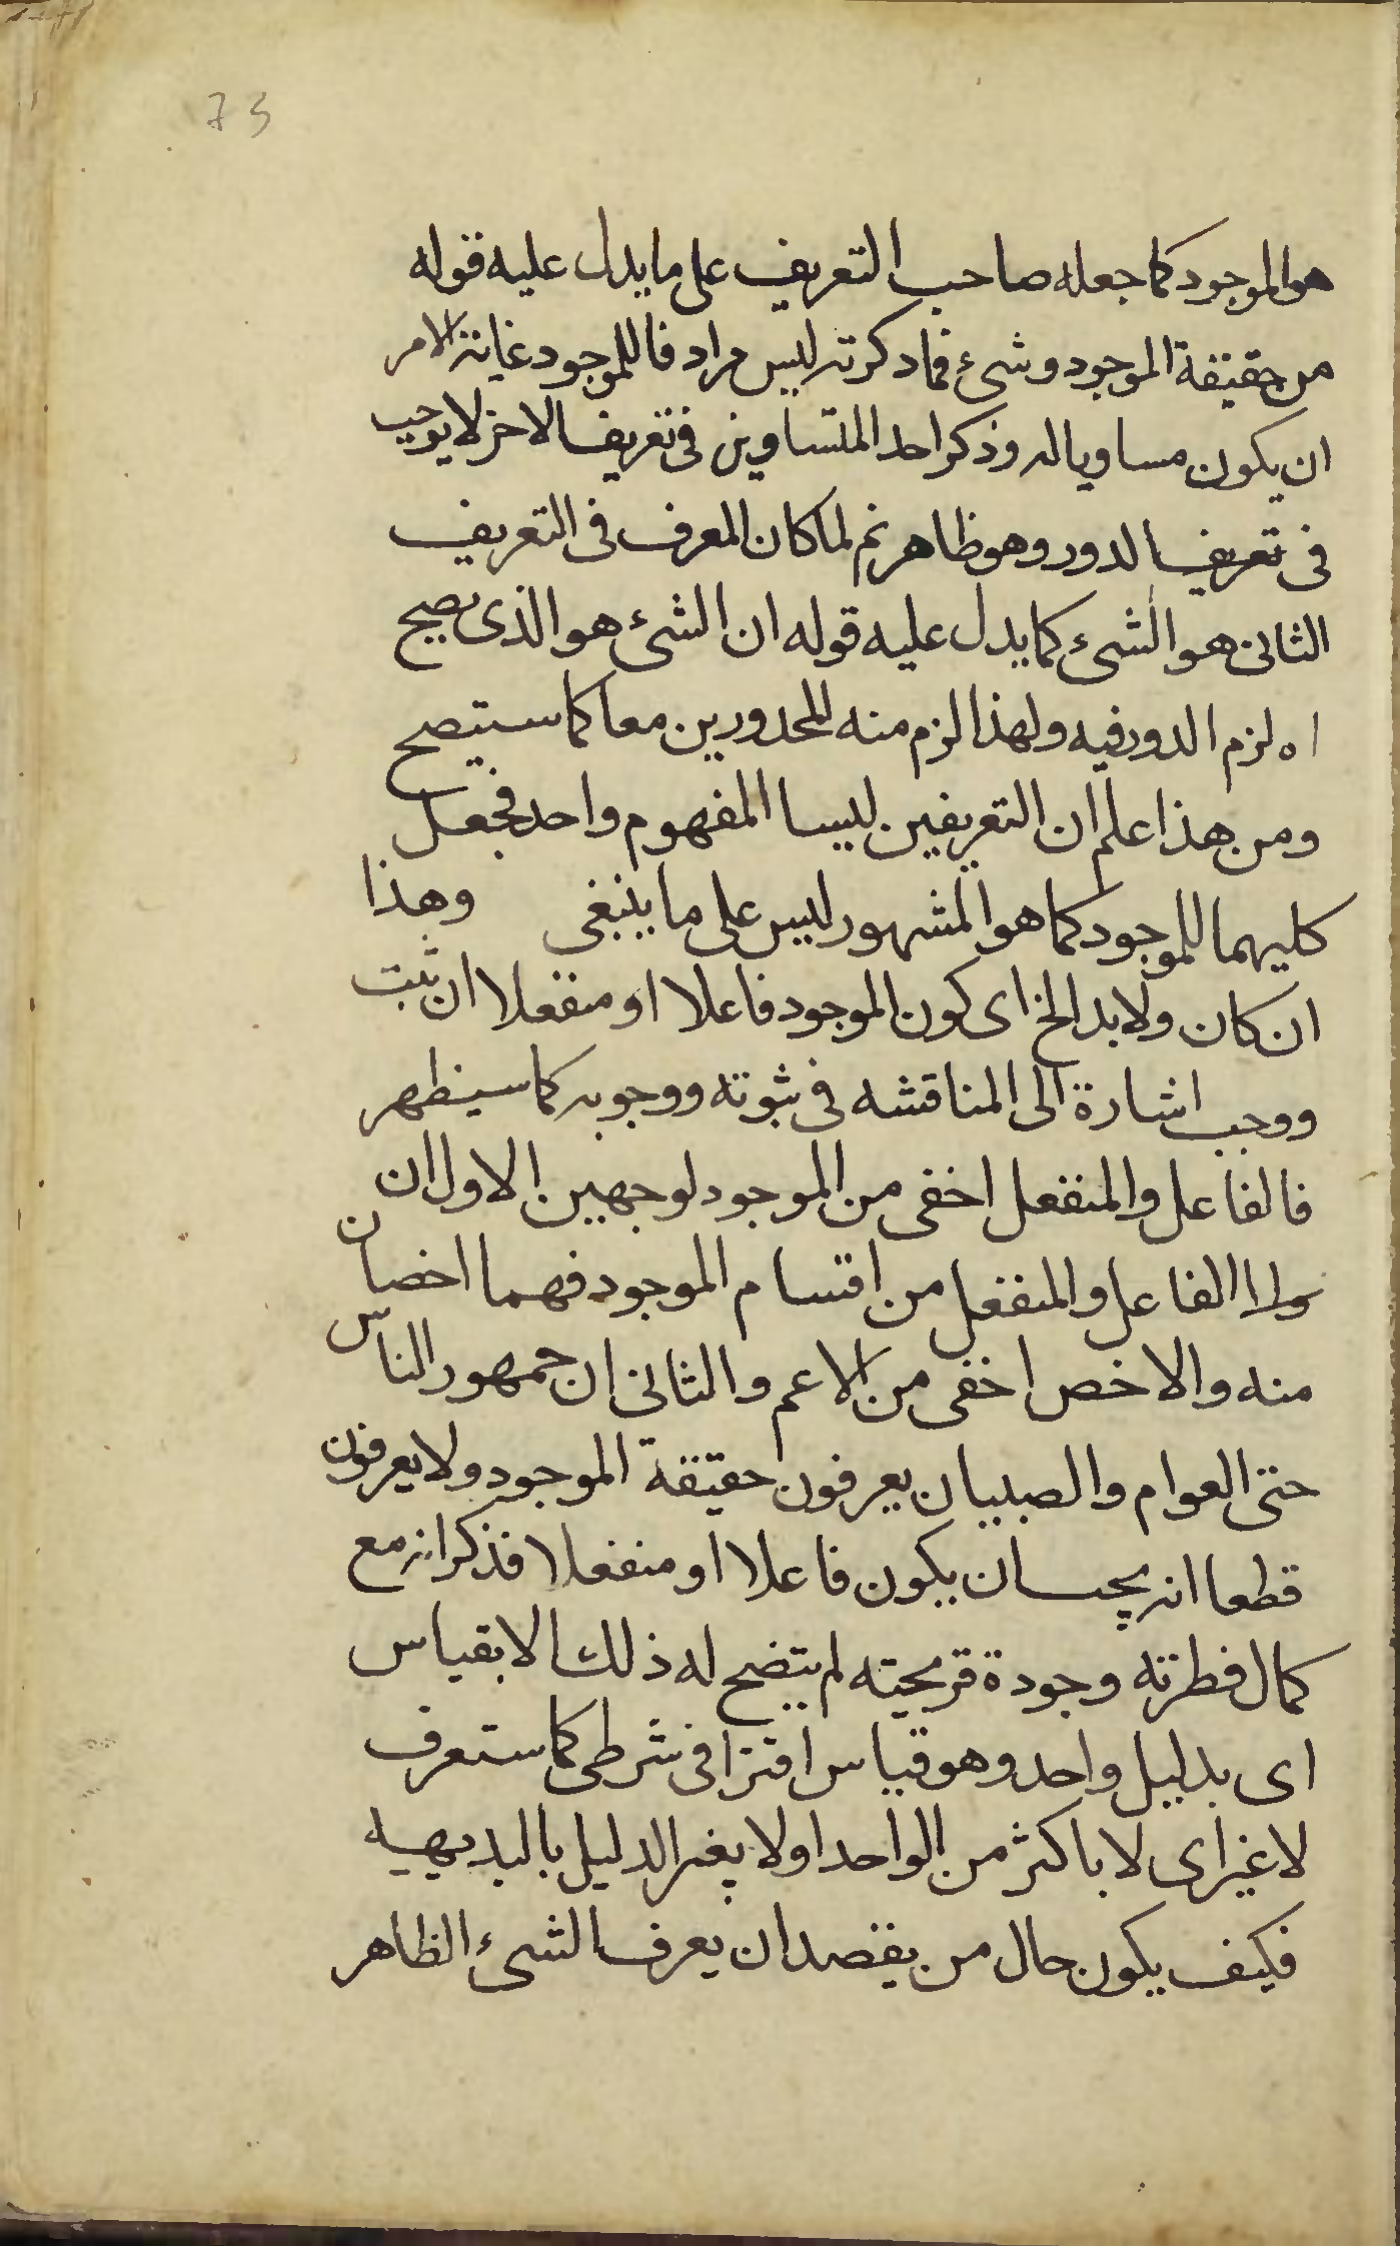 73
هو الموجود كما جعله صاحب التعريف على ما يدل عليه قوله
من حقيقة الموجود وشىء فما ذكرته ليس مرادفا للموجود غايته الامر
ان يكون مساويا له وذكر احد المتساوين فى تعريف الاخر لا يوجب
فى تعريف الدور وهو ظاهر ثم لما كان المعرف فى التعريف
الثانى هو الشىء كما يدل عليه قوله ان الشىء هو الذى يصح
اه لزم الدور فيه ولهذا لزم منه للمحدورين معا كما سيتصح
ومن هذا علم ان التعريفين ليسا المفهوم واحد فجعل
كليهما للموجود كما هو المشهور ليس على ما ينبغى وهذا
ان كان ولا بد الخ اى كون الموجود فاعلا او منفعلا ان ثبت
ووجب اشارة الى المناقشه فى ثبوته ووجوبه كما سيظهر
فالفاعل والمنفعل اخفى من الموجود لوجهين الاول ان
الفاعل والمنفعل من اقسام الموجود فهما اخصان
منه والاخص اخفى من الاعم والثانى ان جمهور الناس
حتى العوام والصبيان يعرفون حقيقة الموجود ولا يعرفون
قطعا انه يجب ان يكون فاعلا او منفعلا فذكر انه مع
كمال فطرته وجودة قريحته لم يتضح له ذلك الا بقياس
اى بدليل واحد وهو قياس اقترانى شرطى كما ستعرف
لا غير اى لا باكثر من الواحد اولا بغير الدليل بالبديهيه
فكيف يكون حال من يقصد ان يعرف الشىء الظاهر